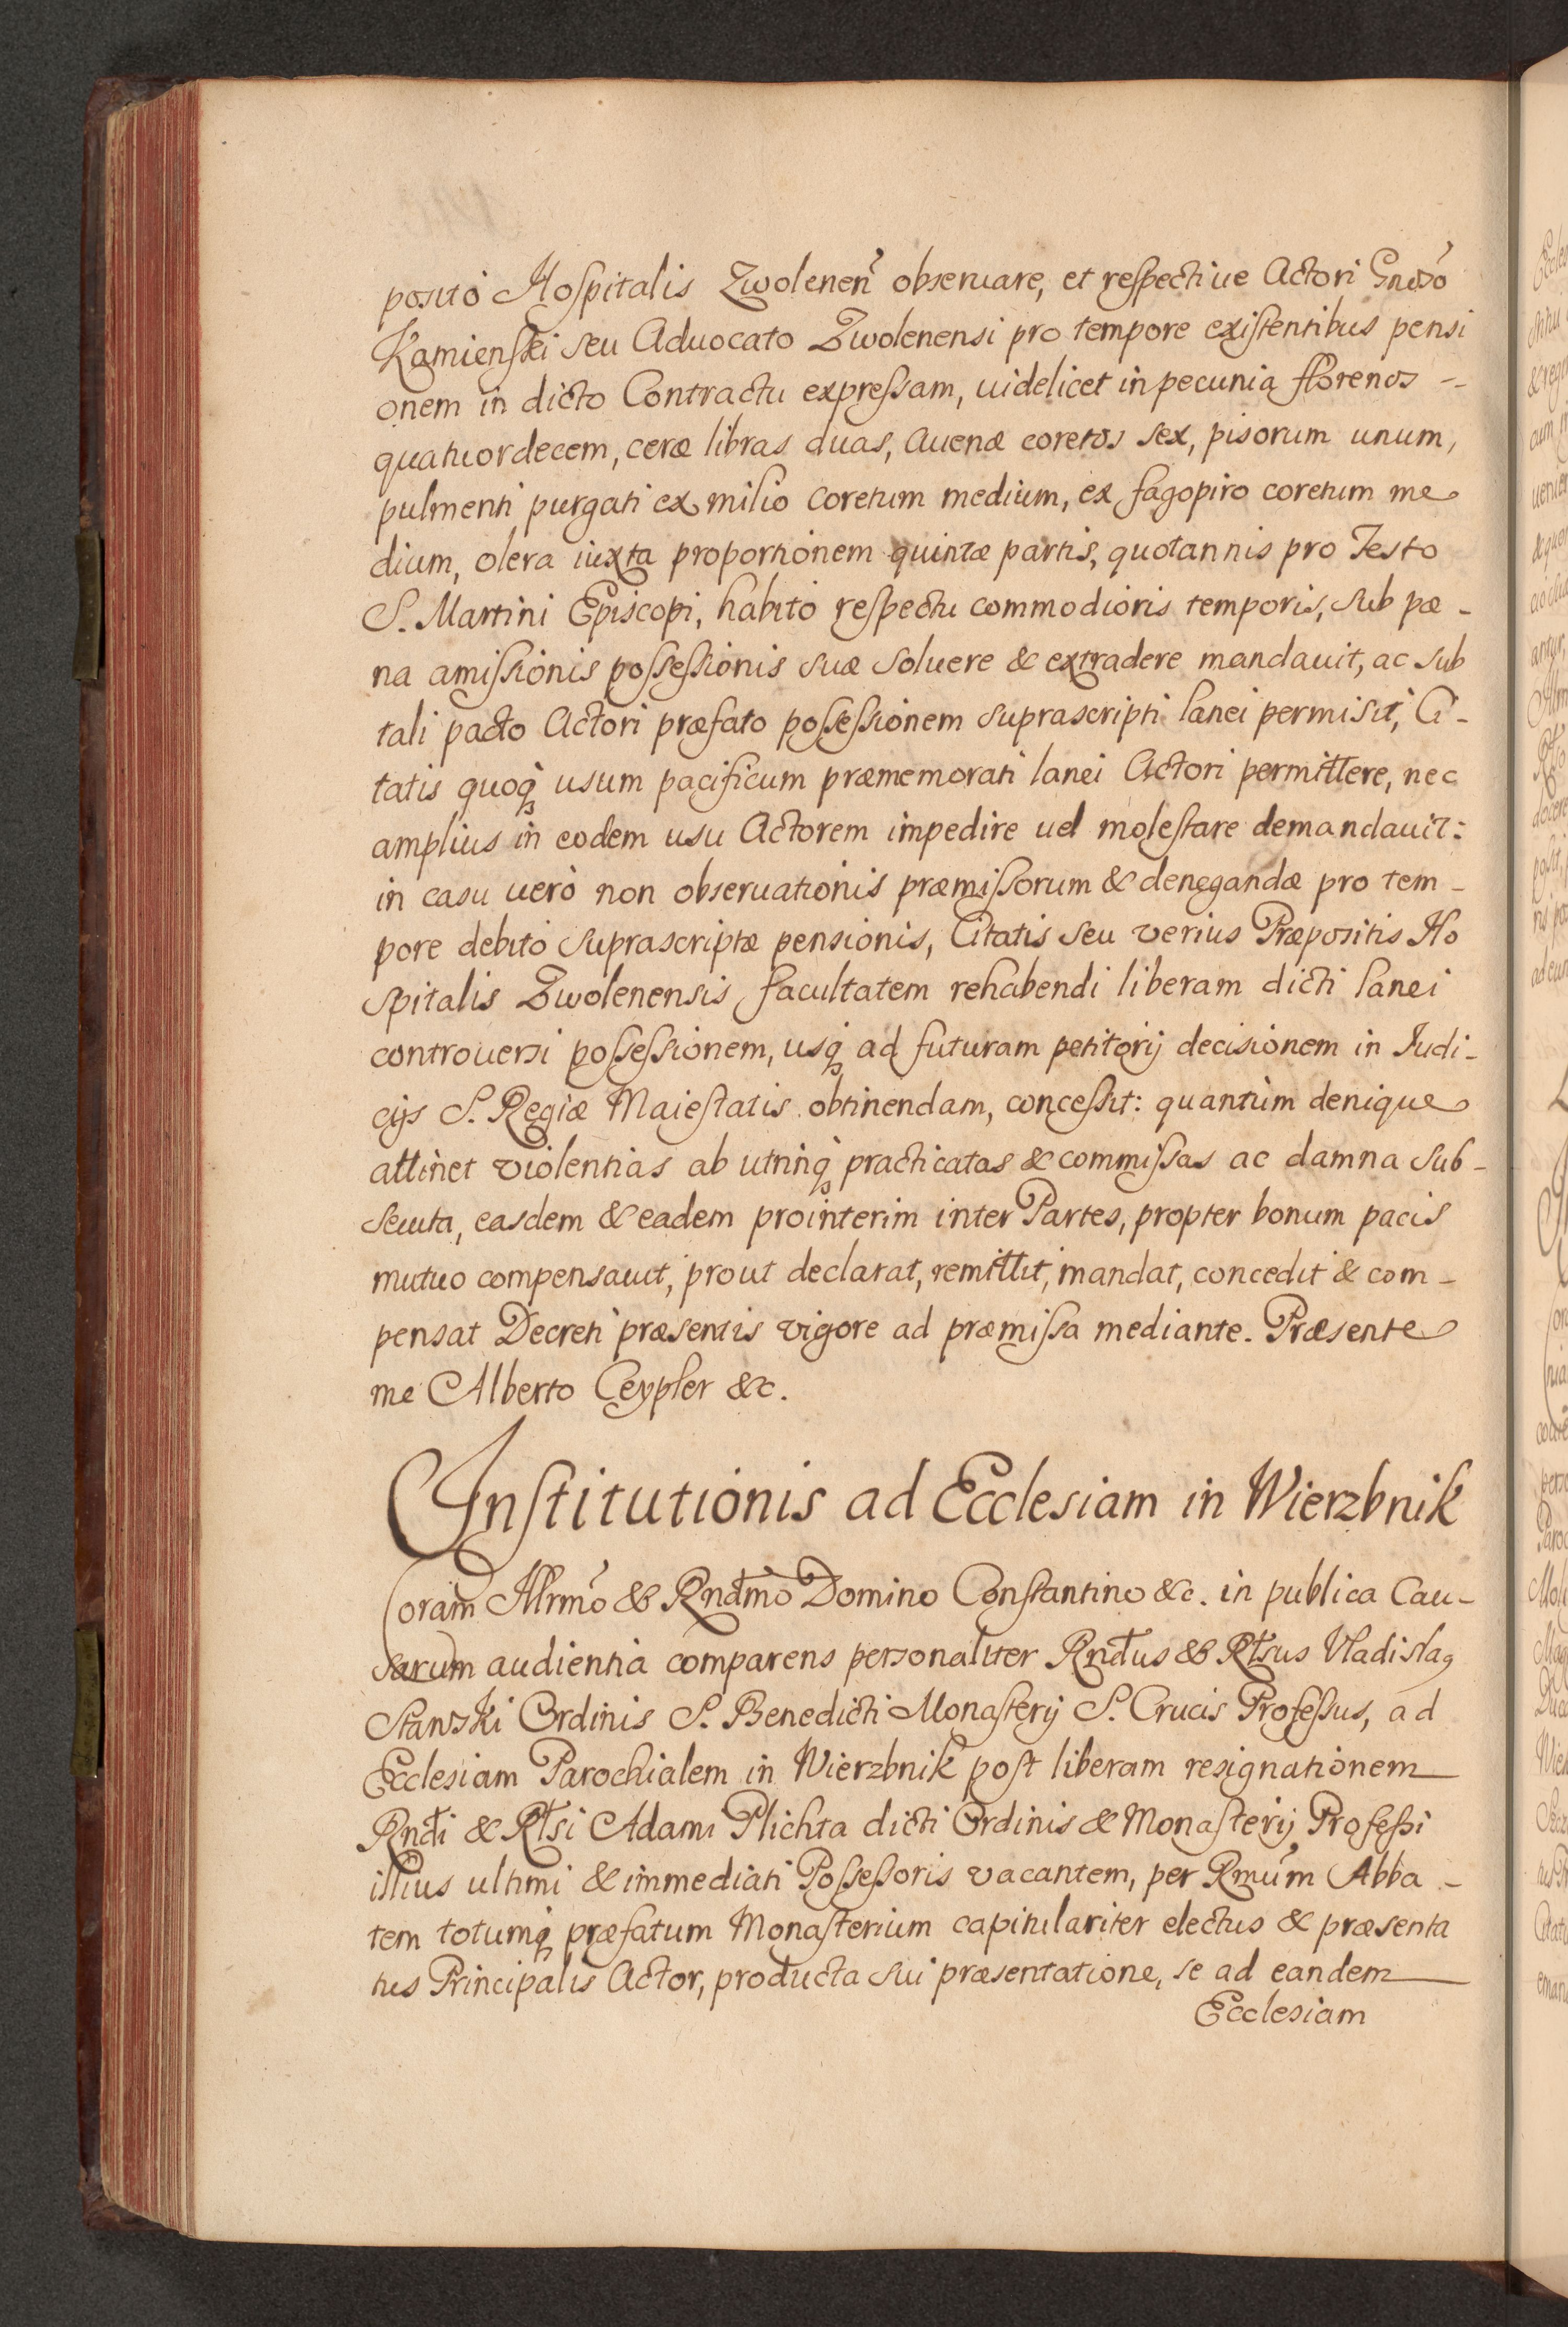 posito Hospitalis Zwolenen̄ obseruare, et respectiue Actori Gnōso
Kamienski seu Aduocato Zwolenensi pro tempore existentibus pensi
onem in dicto Contractu expressam, uidelicet in pecunia florenos --
quatuordecem, ceræ libras duas, Auenæ coretos sex, pisorum unum,
pulmenti purgati ex milio coretum medium, ex fagopiro coretum me
dium, olera iuxta proportionem quintæ partis, quotannis pro Festo
S. Martini Episcopi, habito respectu commodioris temporis, sub pæ-
na amissionis possessionis suæ soluere & extradere mandauit, ac sub
tali pacto Actori præfato possessionem suprascripti lanei permisit, Ci-
tatis quoq; usum pacificum præmemorati lanei Actori permittere, nec
amplius in eodem usu Actorem impedire uel molestare demandauit:
in casu uerò non obseruationis præmissorum & denegandæ pro tem-
pore debito suprascriptæ pensionis, Citatis seu verius Præpositis Ho
spitalis Zwolenensis facultatem rehabendi liberam dicti lanei
controuersi possessionem, usq; ad futuram petitorij decisionem in Iudi-
cijs S. Regiæ Maiestatis obtinendam, concessit: quantùm denique
attinet violentias ab utrinq; practicatas & commissas ac damna sub-
secuta, easdem & eadem prointerim inter Partes, propter bonum pacis
mutuo compensauit, prout declarat, remittit, mandat, concedit & com-
pensat Decreti præsentis vigore ad præmissa mediante. Præsente
me Alberto Ceypler &c.
Institutionis ad Ecclesiam in Wierzbnik
Coram Illrmō & Rndmō Domino Constantino &c. in publica Cau-
sarum audientia comparens personaliter Rndus & Rlsus Vladislaq
Stanski Ordinis S. Benedicti Monasterij S. Crucis Professus, ad
Ecclesiam Parochialem in Wierzbnik post liberam resignationem
Rndi & Rlsi Adami Plichta dicti Ordinis & Monasterij Professi
illius ultimi & immediati Possessoris vacantem, per Rmūm Abba-
tem totumq; præfatum Monasterium capitulariter electus & præsenta
tus Principalis Actor, producta sui præsentatione, se ad eandem
Ecclesiam